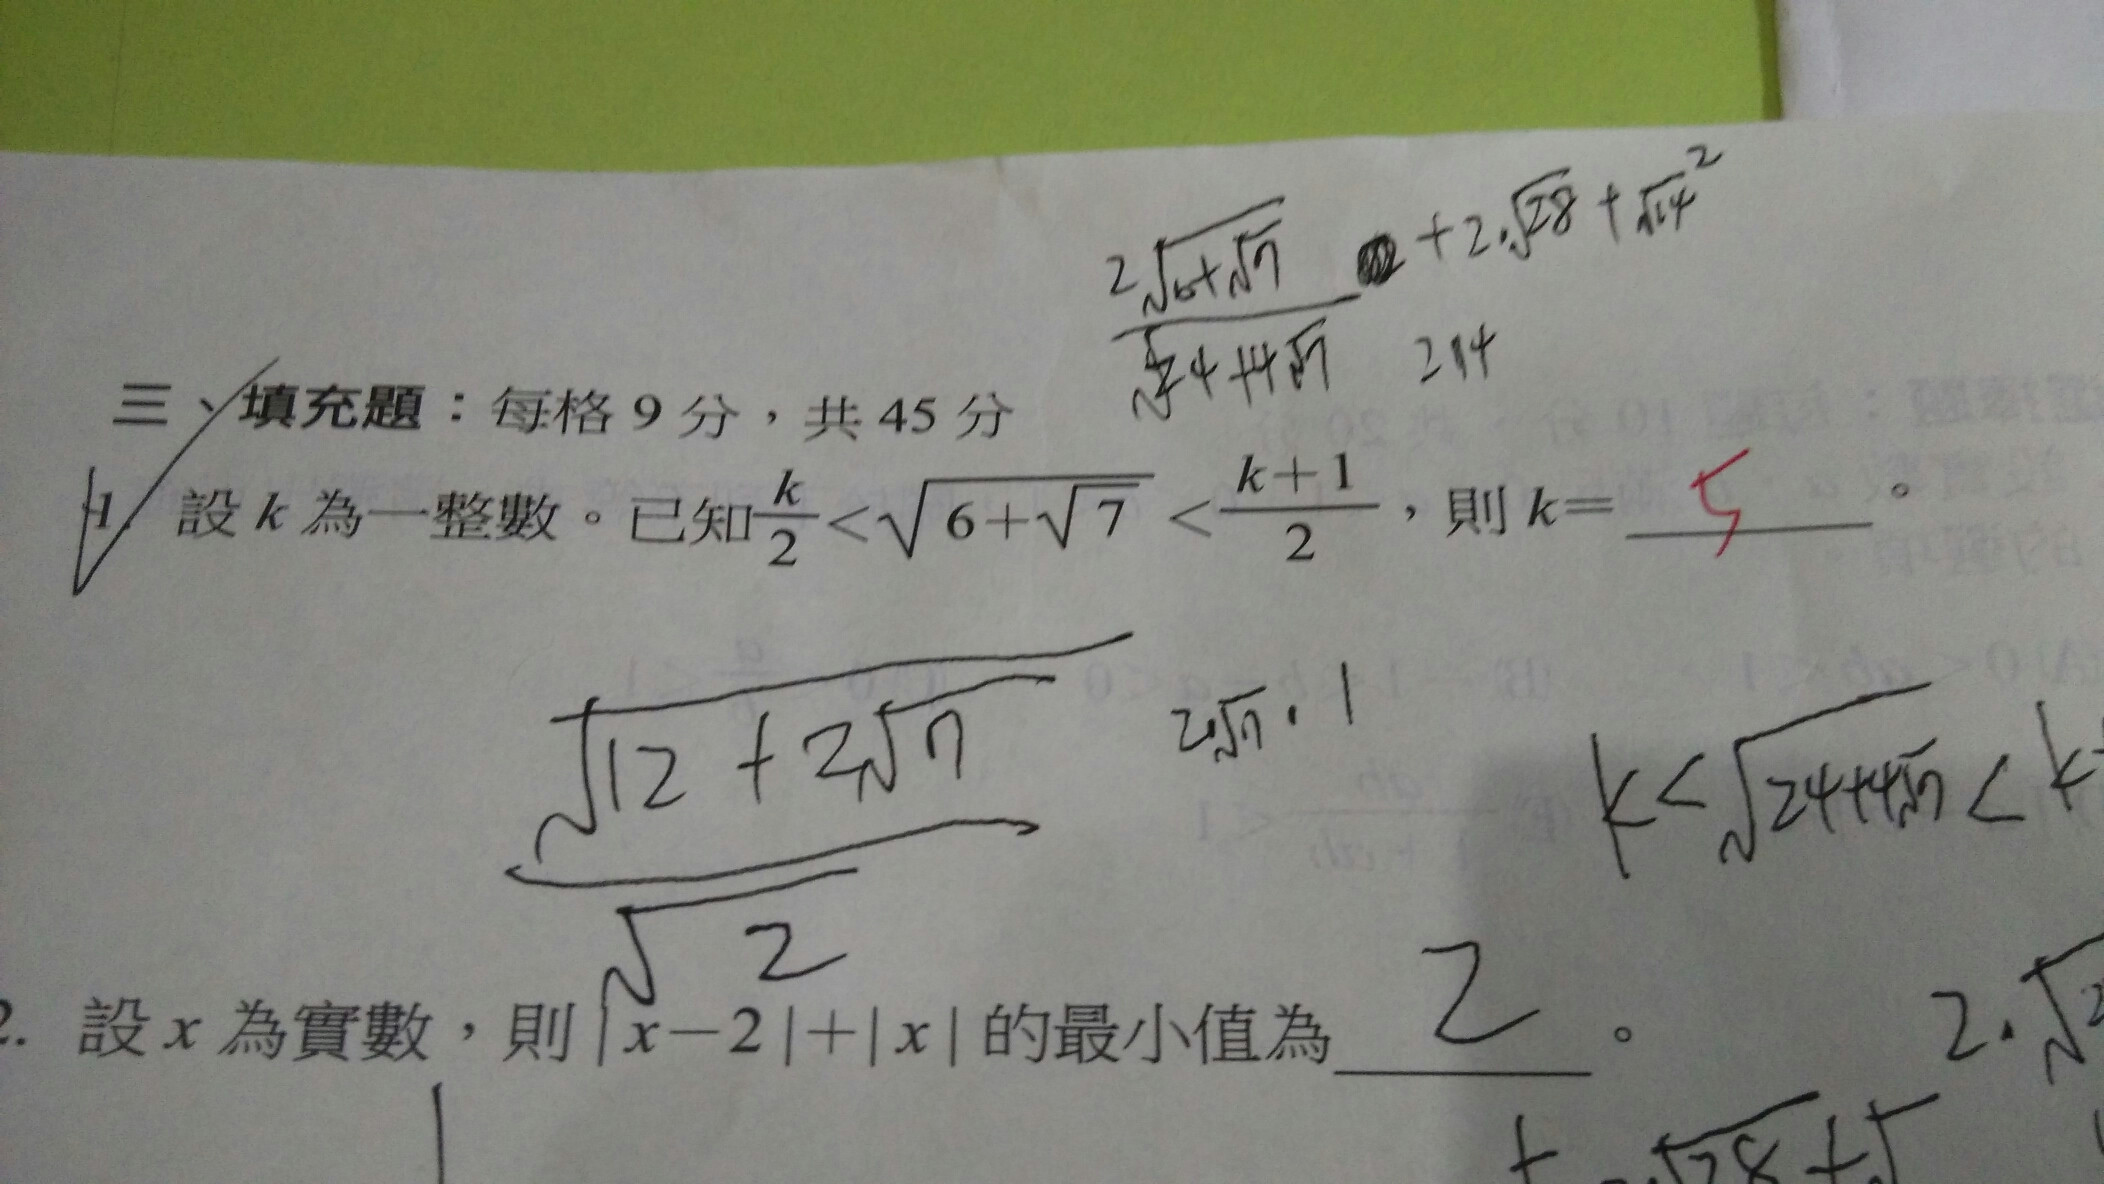 2√6+√7 +2·√28+√14²
√24+4√7 214
三、填充題：每格9分，共45分
1. 設 k 為一整數。已知 k/2 < √(6+√7) < (k+1)/2，則 k= 5 。
√12+2√7 2·√7·1
√2
k<√24+4√7<k+
2. 設 x 為實數，則 |x−2|+|x| 的最小值為 2 。
2·√2
√28+√